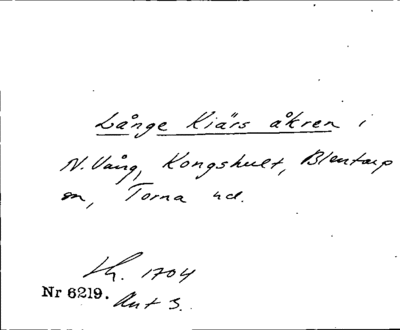 Långe Kiärs åkren i
N. Vång, Kongshult, Blentarp
sn, Torna hd.
Lh. 1704
Nr 6219. Ant 3.